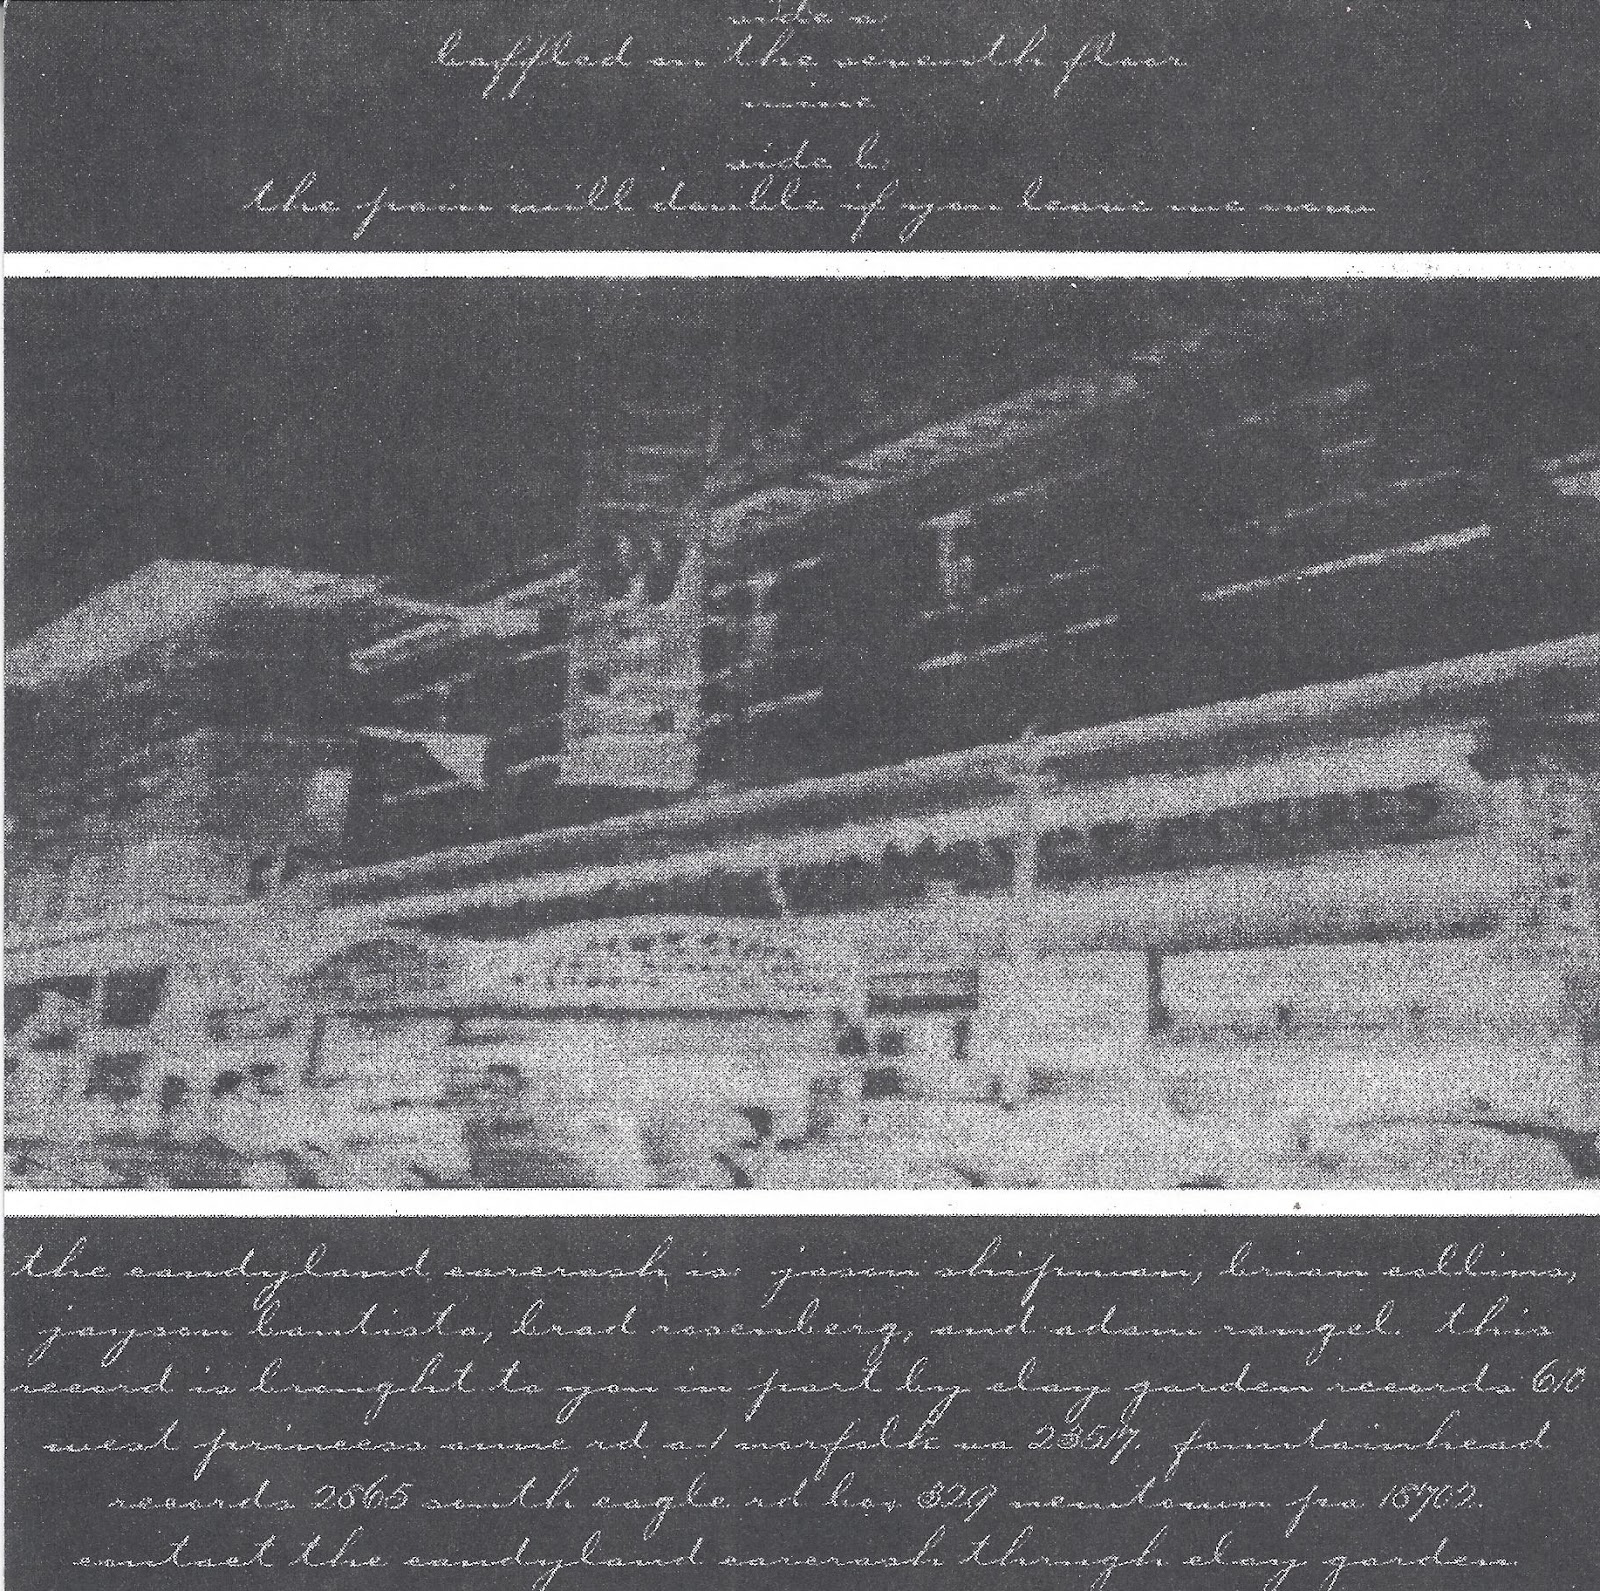 side a
baffled on the seventh floor
mine
side b
the pain will double if you leave me now
the candyland carcrash is: jason shipman, brian collins,
jayson bautista, brad rosenberg, and adam rangel. this
record is brought to you in part by clay garden records 610
west princess anne rd a1 norfolk va 23517. fountainhead
records 2865 south eagle rd box 329 newtown pa 18702.
contact the candyland carcrash through clay garden.